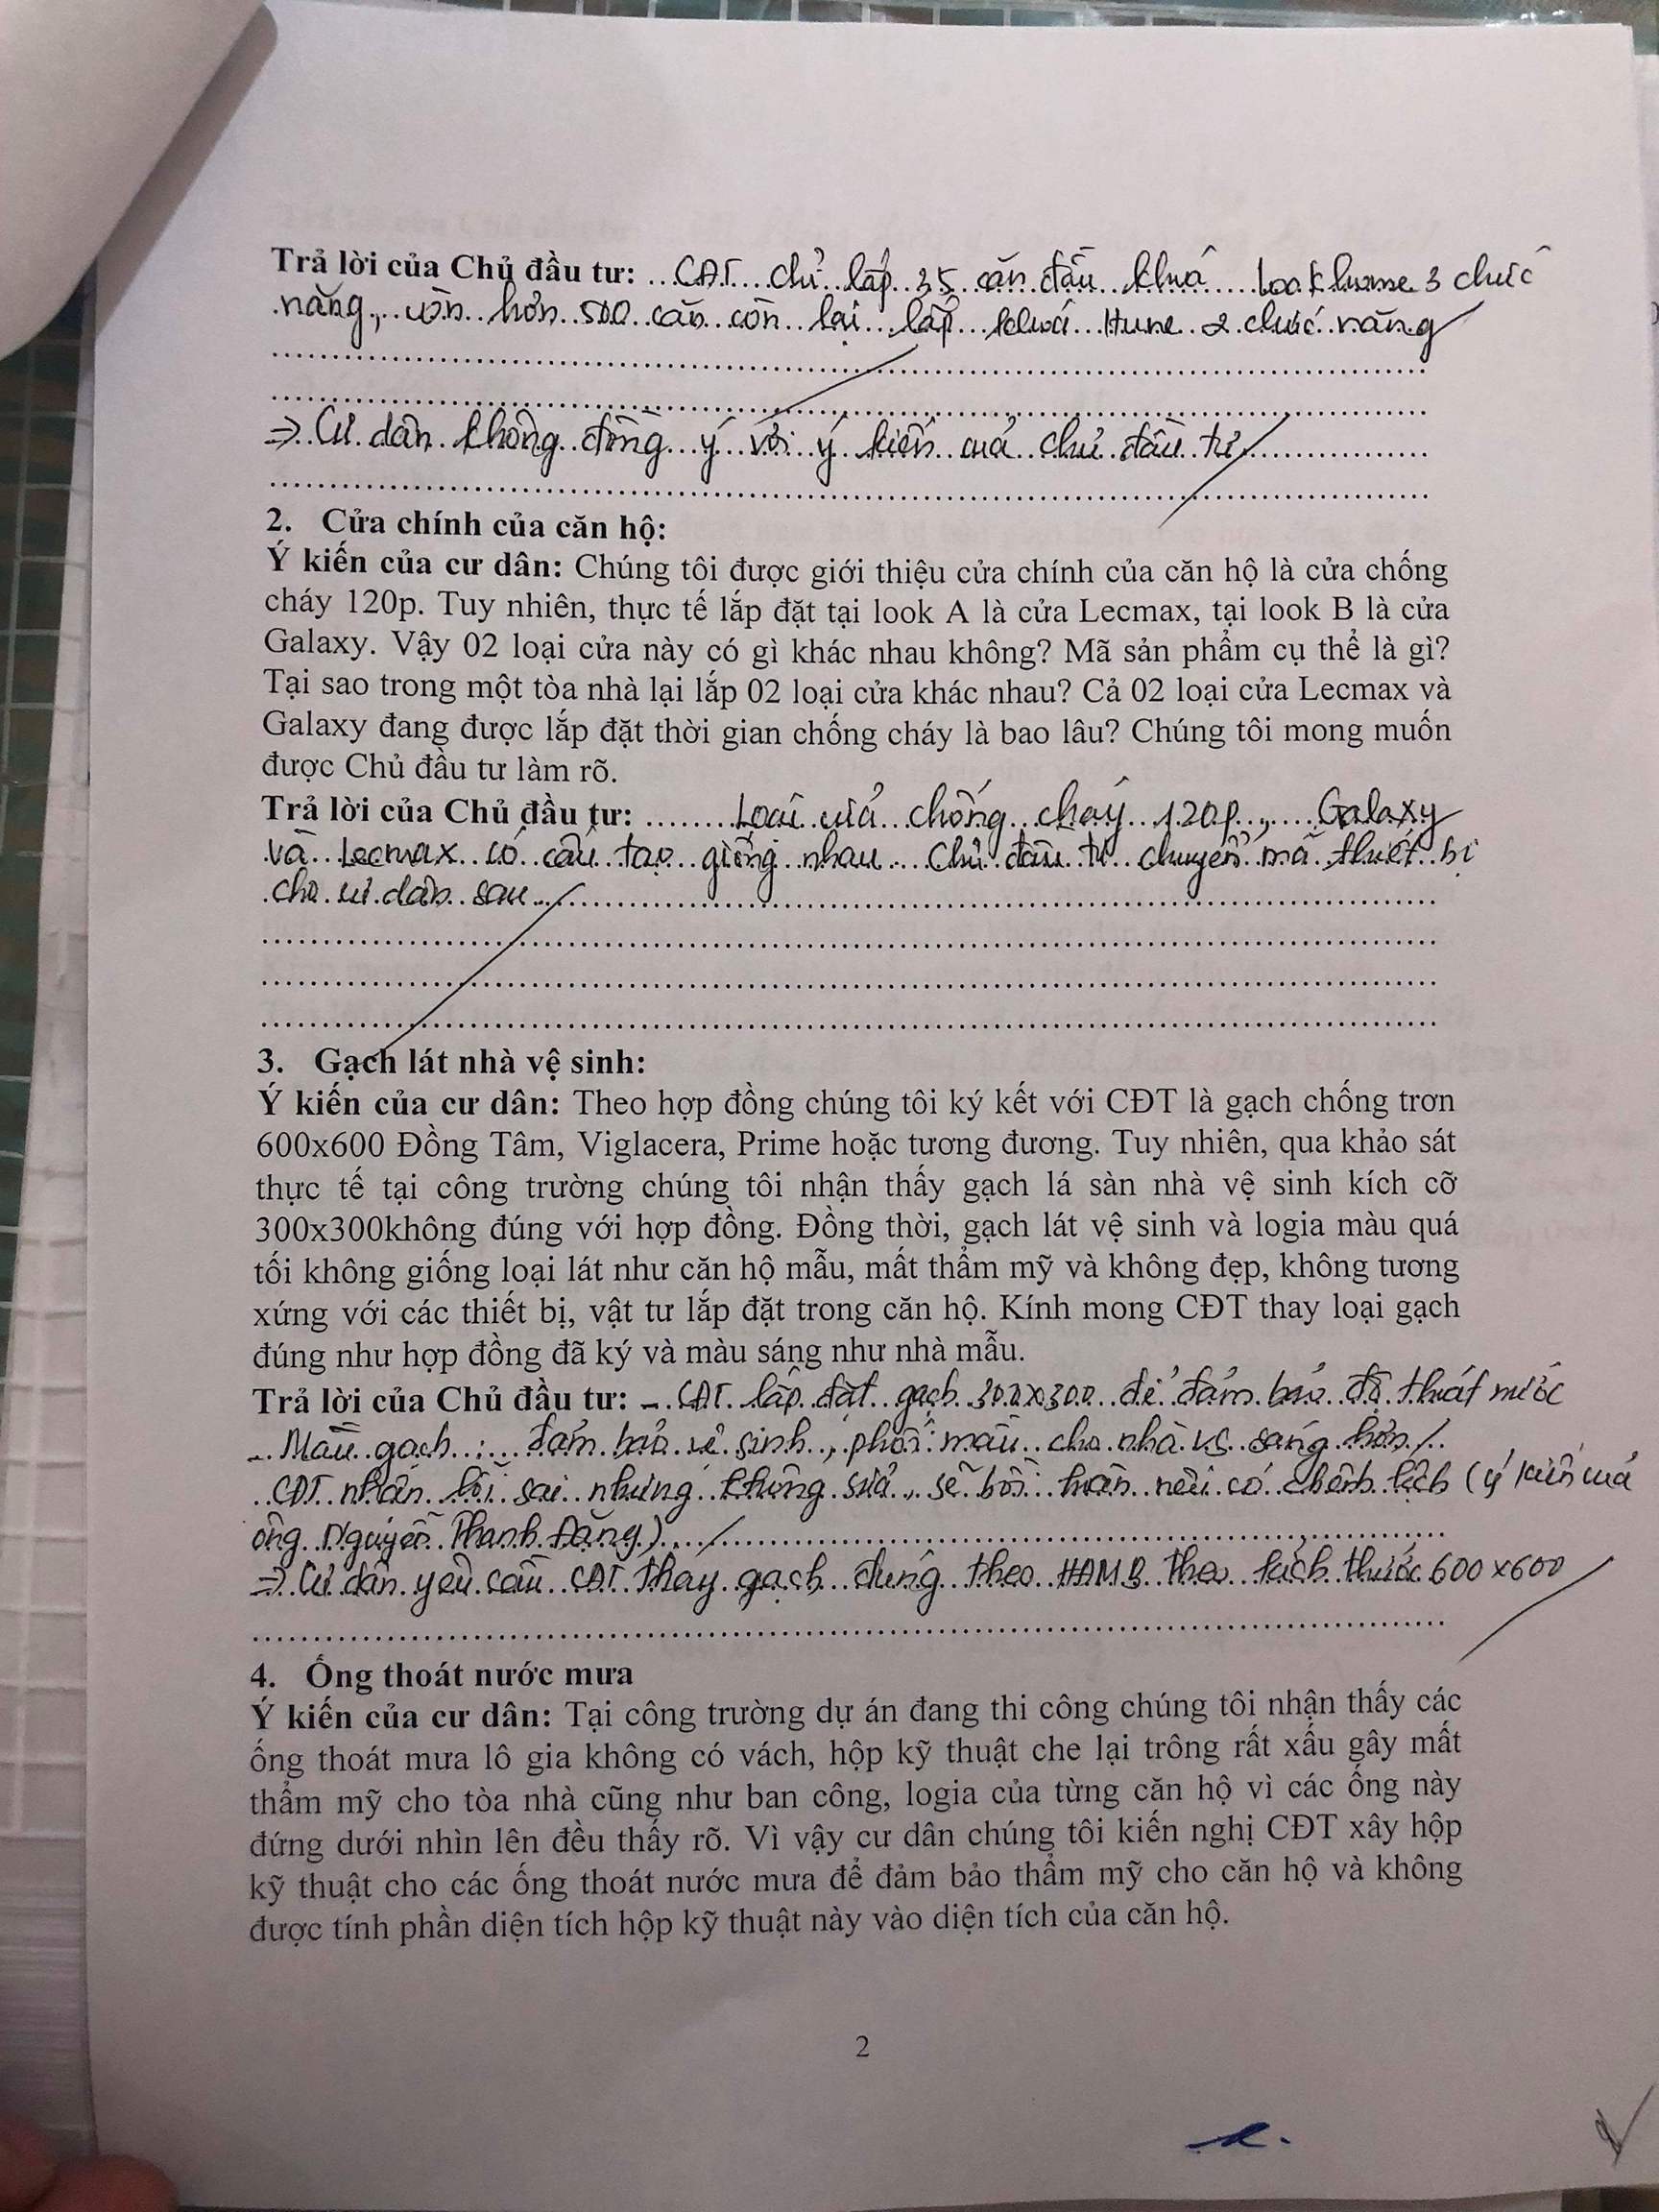 Trả lời của Chủ đầu tư: CĐT chỉ lắp 35 căn đầu khoá 3 chức
năng, còn hơn 500 căn còn lại lắp khoá Hune 2 chức năng
=> Cư dân không đồng ý với ý kiến của chủ đầu tư
2. Cửa chính của căn hộ:
Ý kiến của cư dân: Chúng tôi được giới thiệu cửa chính của căn hộ là cửa chống
cháy 120p. Tuy nhiên, thực tế lắp đặt tại look A là cửa Lecmax, tại look B là cửa
Galaxy. Vậy 02 loại cửa này có gì khác nhau không? Mã sản phẩm cụ thể là gì?
Tại sao trong một tòa nhà lại lắp 02 loại cửa khác nhau? Cả 02 loại cửa Lecmax và
Galaxy đang được lắp đặt thời gian chống cháy là bao lâu? Chúng tôi mong muốn
được Chủ đầu tư làm rõ.
Trả lời của Chủ đầu tư: Loại cửa chống cháy 120p, Galaxy
và Lecmax có cấu tạo giống nhau. Chủ đầu tư chuyển mã thiết bị
cho cư dân sau
3. Gạch lát nhà vệ sinh:
Ý kiến của cư dân: Theo hợp đồng chúng tôi ký kết với CĐT là gạch chống trơn
600x600 Đồng Tâm, Viglacera, Prime hoặc tương đương. Tuy nhiên, qua khảo sát
thực tế tại công trường chúng tôi nhận thấy gạch lá sàn nhà vệ sinh kích cỡ
300x300không đúng với hợp đồng. Đồng thời, gạch lát vệ sinh và logia màu quá
tối không giống loại lát như căn hộ mẫu, mất thẩm mỹ và không đẹp, không tương
xứng với các thiết bị, vật tư lắp đặt trong căn hộ. Kính mong CĐT thay loại gạch
đúng như hợp đồng đã ký và màu sáng như nhà mẫu.
Trả lời của Chủ đầu tư: - CĐT lắp đặt gạch 300x300 để đảm bảo độ thoát nước
- Màu gạch: đảm bảo vệ sinh, phối màu cho nhà vs sáng hơn
CĐT nhận lỗi sai nhưng không sửa, sẽ bồi hoàn nếu có chênh lệch (ý kiến của
ông Nguyễn Thanh Đặng)
=> Cư dân yêu cầu CĐT thay gạch đúng theo HĐMB theo kích thước 600x600
4. Ống thoát nước mưa
Ý kiến của cư dân: Tại công trường dự án đang thi công chúng tôi nhận thấy các
ống thoát mưa lô gia không có vách, hộp kỹ thuật che lại trông rất xấu gây mất
thẩm mỹ cho tòa nhà cũng như ban công, logia của từng căn hộ vì các ống này
đứng dưới nhìn lên đều thấy rõ. Vì vậy cư dân chúng tôi kiến nghị CĐT xây hộp
kỹ thuật cho các ống thoát nước mưa để đảm bảo thẩm mỹ cho căn hộ và không
được tính phần diện tích hộp kỹ thuật này vào diện tích của căn hộ.
2